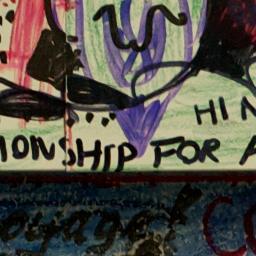 HI N
IONSHIP FOR A
oyage! CO